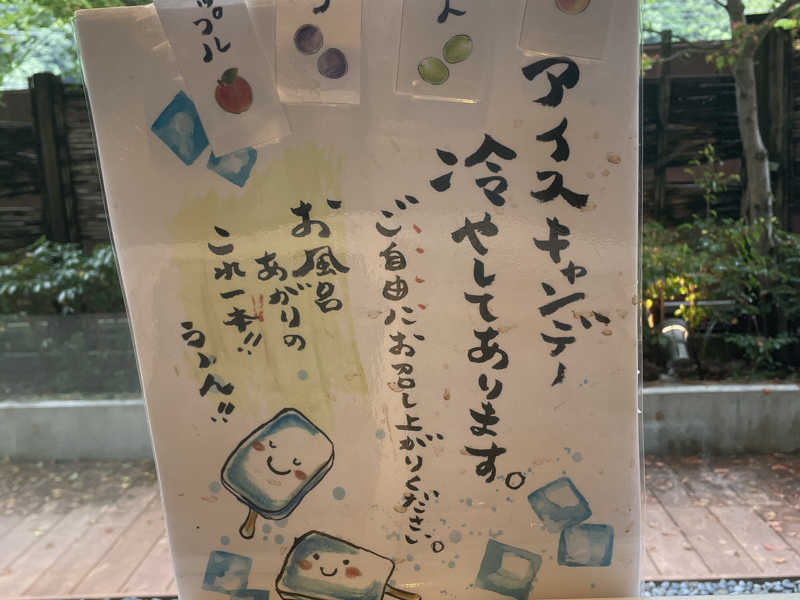 アイスキャンデー
冷やしてあります。
ご自由にお召し上がりください。
お風呂
あがりの
これ一本!!
う〜ん!!
プル